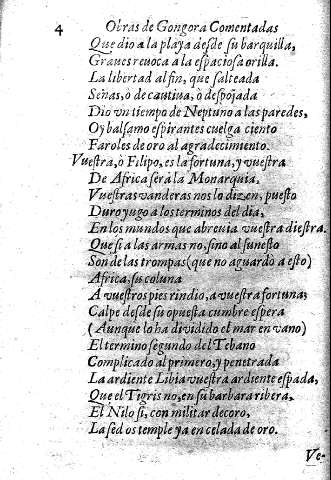 4 Obras de Gongora Comentadas
Que dio a la playa desde su barquilla,
Graues reuoca a la espaciosa orilla.
La libertad al fin, que salteada
Señas, ò de cautiua, ò despojada
Dio vn tiempo de Neptuno a las paredes,
Oy balsamo espirantes cuelga ciento
Faroles de oro al agradecimento.
Vuestra, ò Filipo, es la fortuna, y vuestra
De Africa serà la Monarquia.
Vuestras vanderas nos lo dizen, puesto
Duro yugo a los terminos del dia,
En los mundos que abreuia vuestra diestra.
Que si a las armas no, sino al funesto
Son de las trompas (que no aguardo a esto)
Africa, su coluna
A vuestros pies rindio, a vuestra fortuna;
Calpe desde su opuesta cumbre espera
(Aunque lo ha diuidido el mar en vano)
El termino segundo del Tebano
Complicado al primero, y penetrada
La ardiente Libia vuestra ardiente espada,
Que el Tigris no, en su barbara ribera,
El Nilo si, con militar decoro,
La sed os temple ya en celada de oro.
Ve-